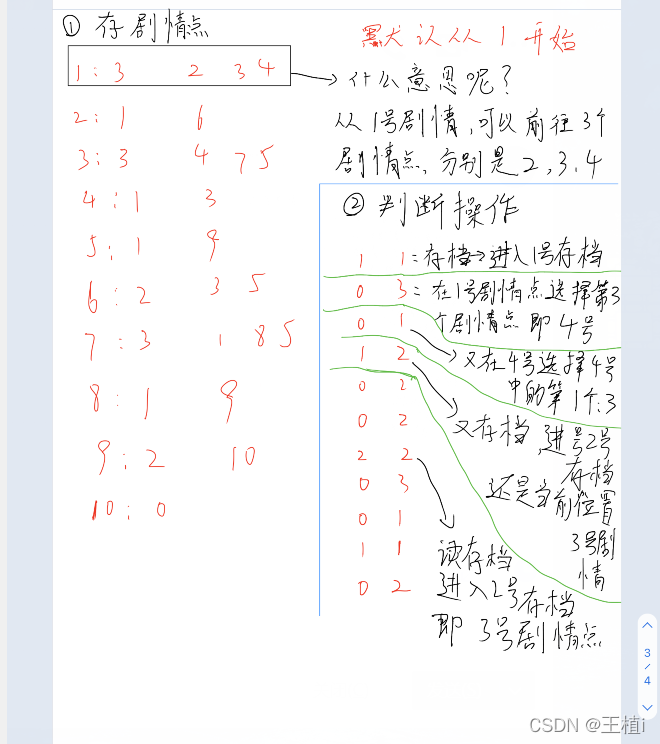 ① 存剧情点
默认从 1 开始
1 : 3 2 3 4
什么意思呢?
2 : 1 6
从1号剧情,可以前往3个
3 : 3 4 7 5
剧情点、分别是 2,3,4
4 : 1 3
② 判断操作
5 : 1 9
1 1 : 存档→进入1号存档
6 : 2 3 5
0 3 : 在1号剧情点选择第3
个剧情点即4号
7 : 3 1 8 5
0 1
又在4号选择4号
中的第1个:3
1 2
又存档,进号2号
存档
还是当前位置
3号剧
情
8 : 1 9
0 2
0 2
9 : 2 10
2 2
读存档
进入2号存档
即 3号剧情点
0 3
10 : 0
0 1
1 1
0 2
3
/
4
CSDN @王植i